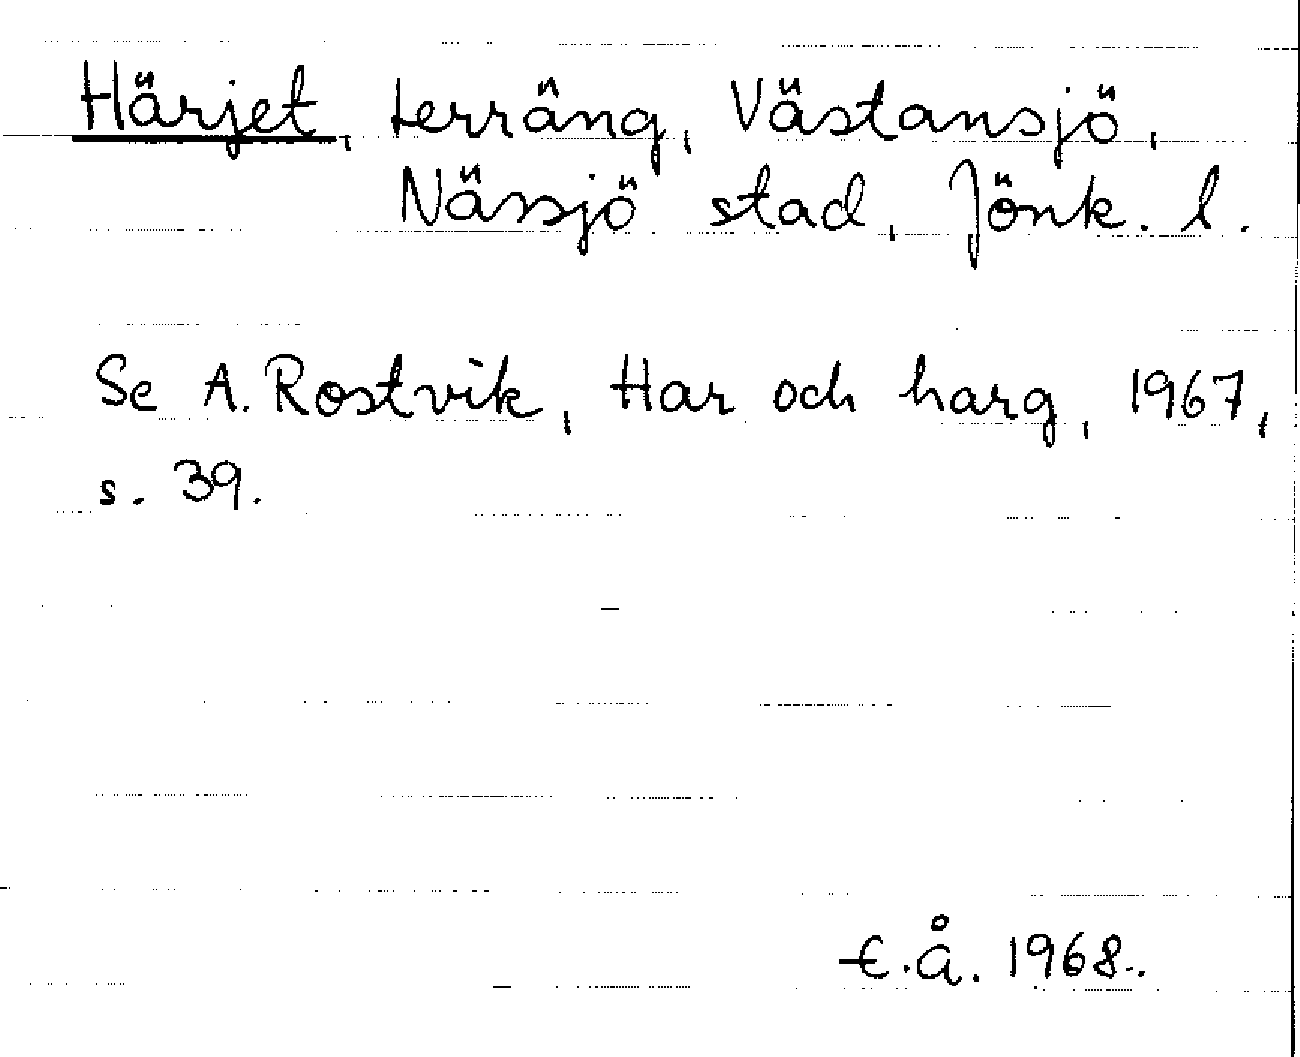 Härjet, terräng, Västansjö,
Nässjö stad, Jönk. l.
Se A. Rostvik, Har och harg, 1967,
s. 39.
E.Å. 1968.